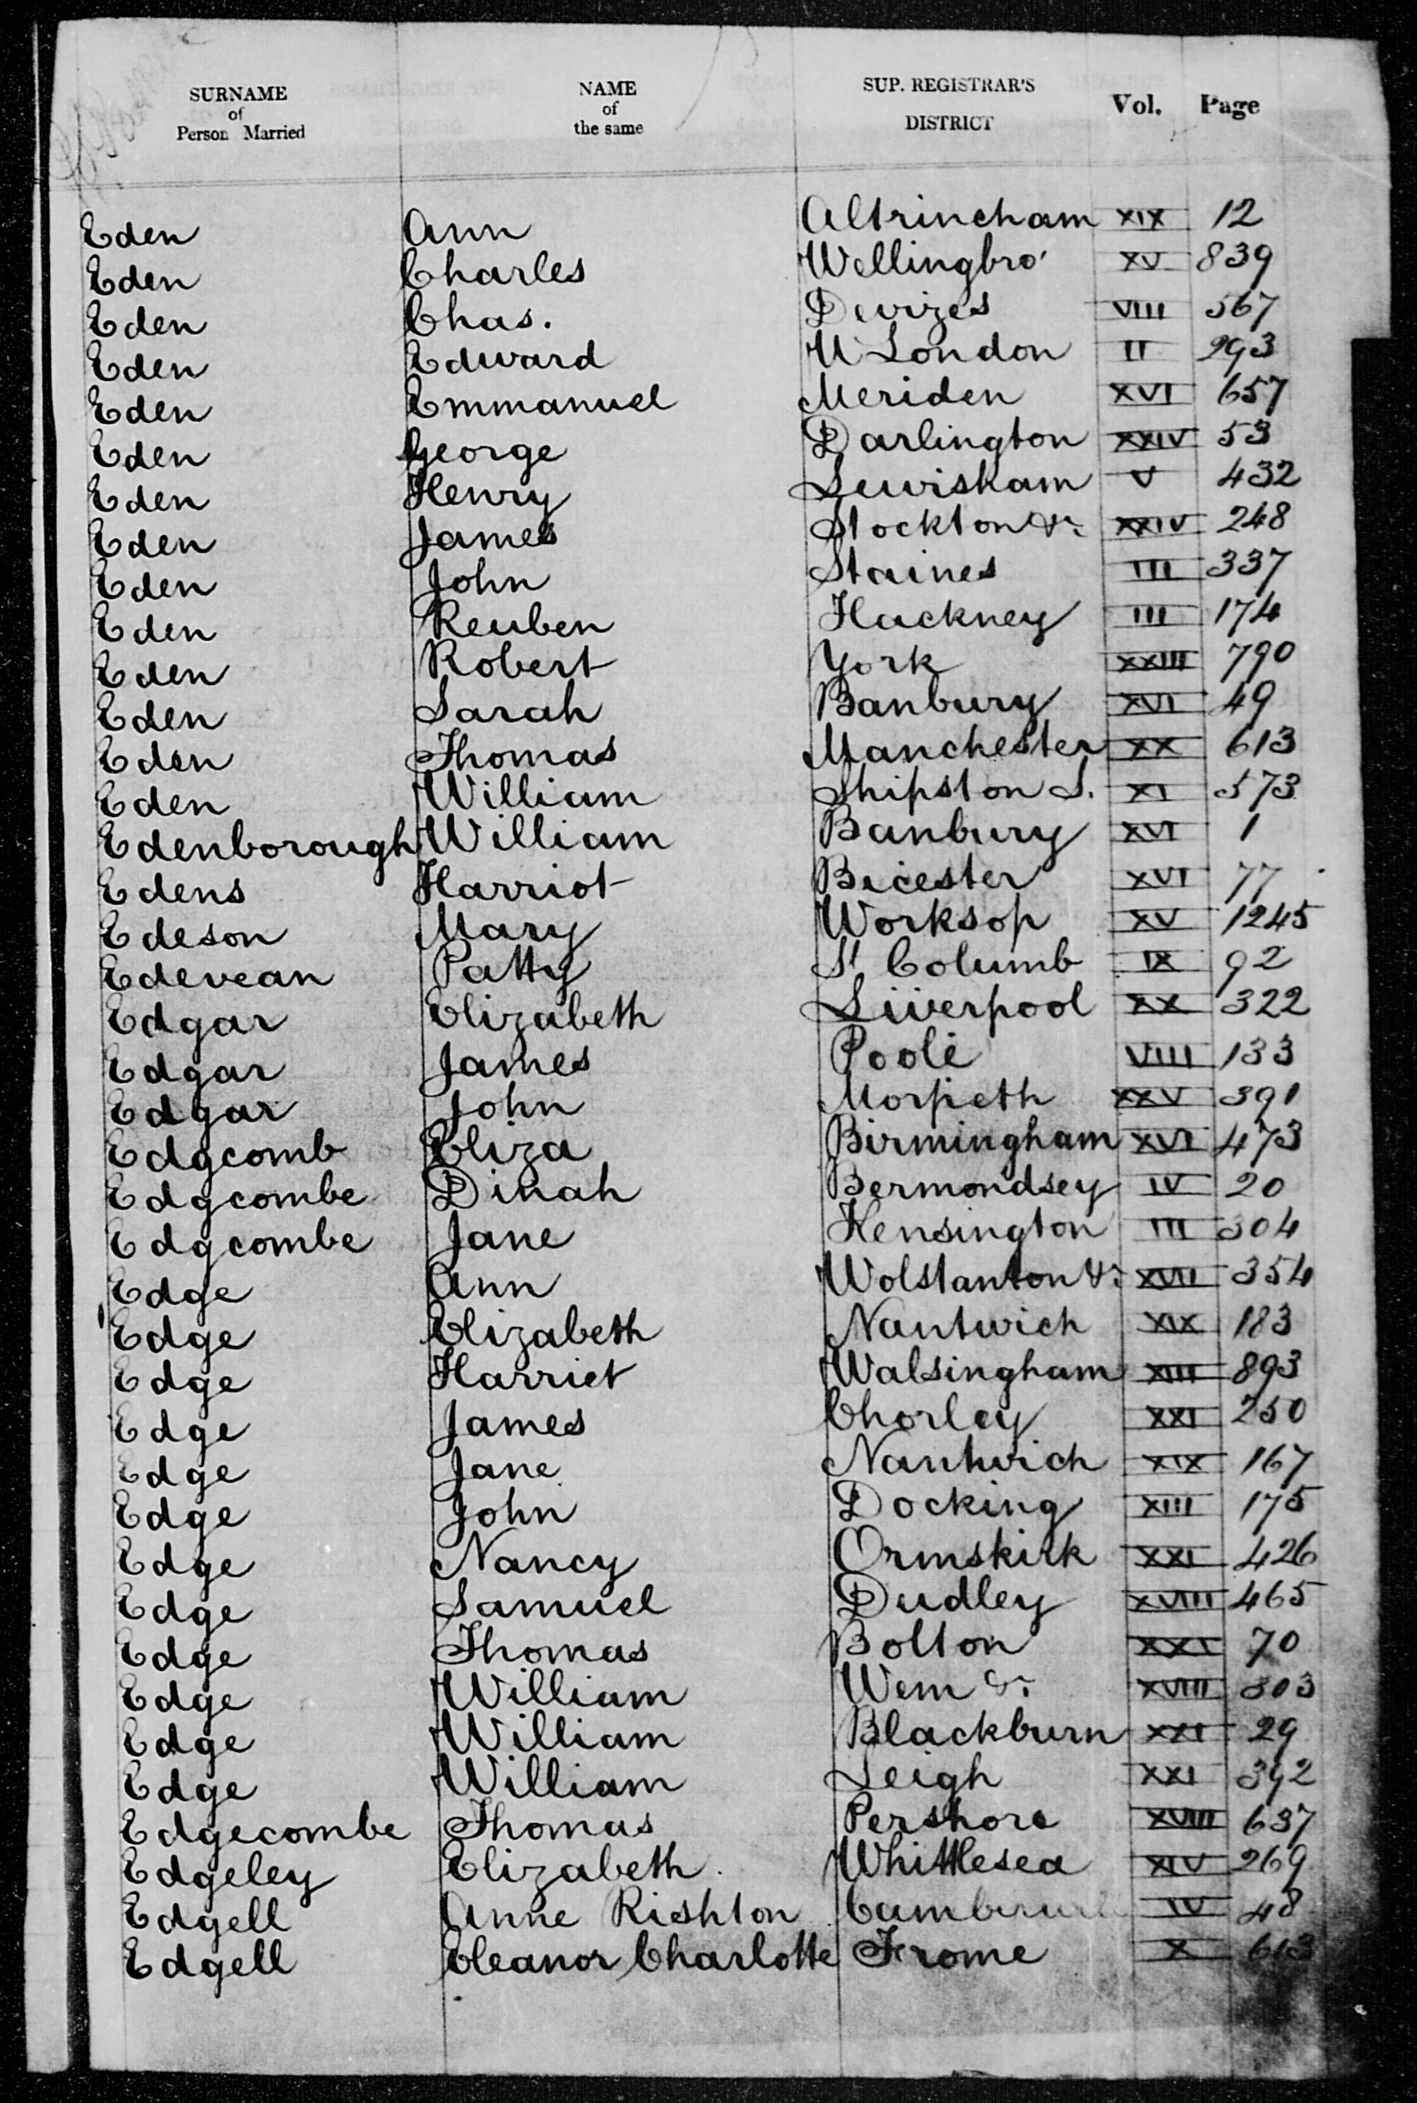 SURNAME of Person Married NAME of the same SUP. REGISTRAR'S DISTRICT Vol. Page
Eden Ann Altrincham XIX 12
Eden Charles Wellingbro' XV 839
Eden Chas. Devizes VIII 567
Eden Edward W London II 293
Eden Emmanuel Meriden XVI 657
Eden George Darlington XXIV 53
Eden Henry Lewisham V 432
Eden James Stockton &c XXIV 248
Eden John Staines III 337
Eden Reuben Hackney III 174
Eden Robert York XXIII 790
Eden Sarah Banbury XVI 49
Eden Thomas Manchester XX 613
Eden William Shipston S. XI 573
Edenborough William Banbury XVI 1
Edens Harriot Bicester XVI 77
Edeson Mary Worksop XV 1245
Edevean Patty St Columb IX 92
Edgar Elizabeth Liverpool XX 322
Edgar James Poole VIII 133
Edgar John Morpeth XXV 391
Edgcomb Eliza Birmingham XVI 473
Edgcombe Dinah Bermondsey IV 20
Edgcombe Jane Kensington III 304
Edge Ann Wolstanton &c XVII 354
Edge Elizabeth Nantwich XIX 183
Edge Harriet Walsingham XIII 893
Edge James Chorley XXI 250
Edge Jane Nantwich XIX 167
Edge John Docking XIII 175
Edge Nancy Ormskirk XXI 426
Edge Samuel Dudley XVIII 465
Edge Thomas Bolton XXI 70
Edge William Wem &c XVIII 303
Edge William Blackburn XXI 29
Edge William Leigh XXI 392
Edgecombe Thomas Pershore XVIII 637
Edgeley Elizabeth Whittlesea XIV 269
Edgell Anne Rishton IV 48
Edgell Eleanor Charlotte Frome X 613